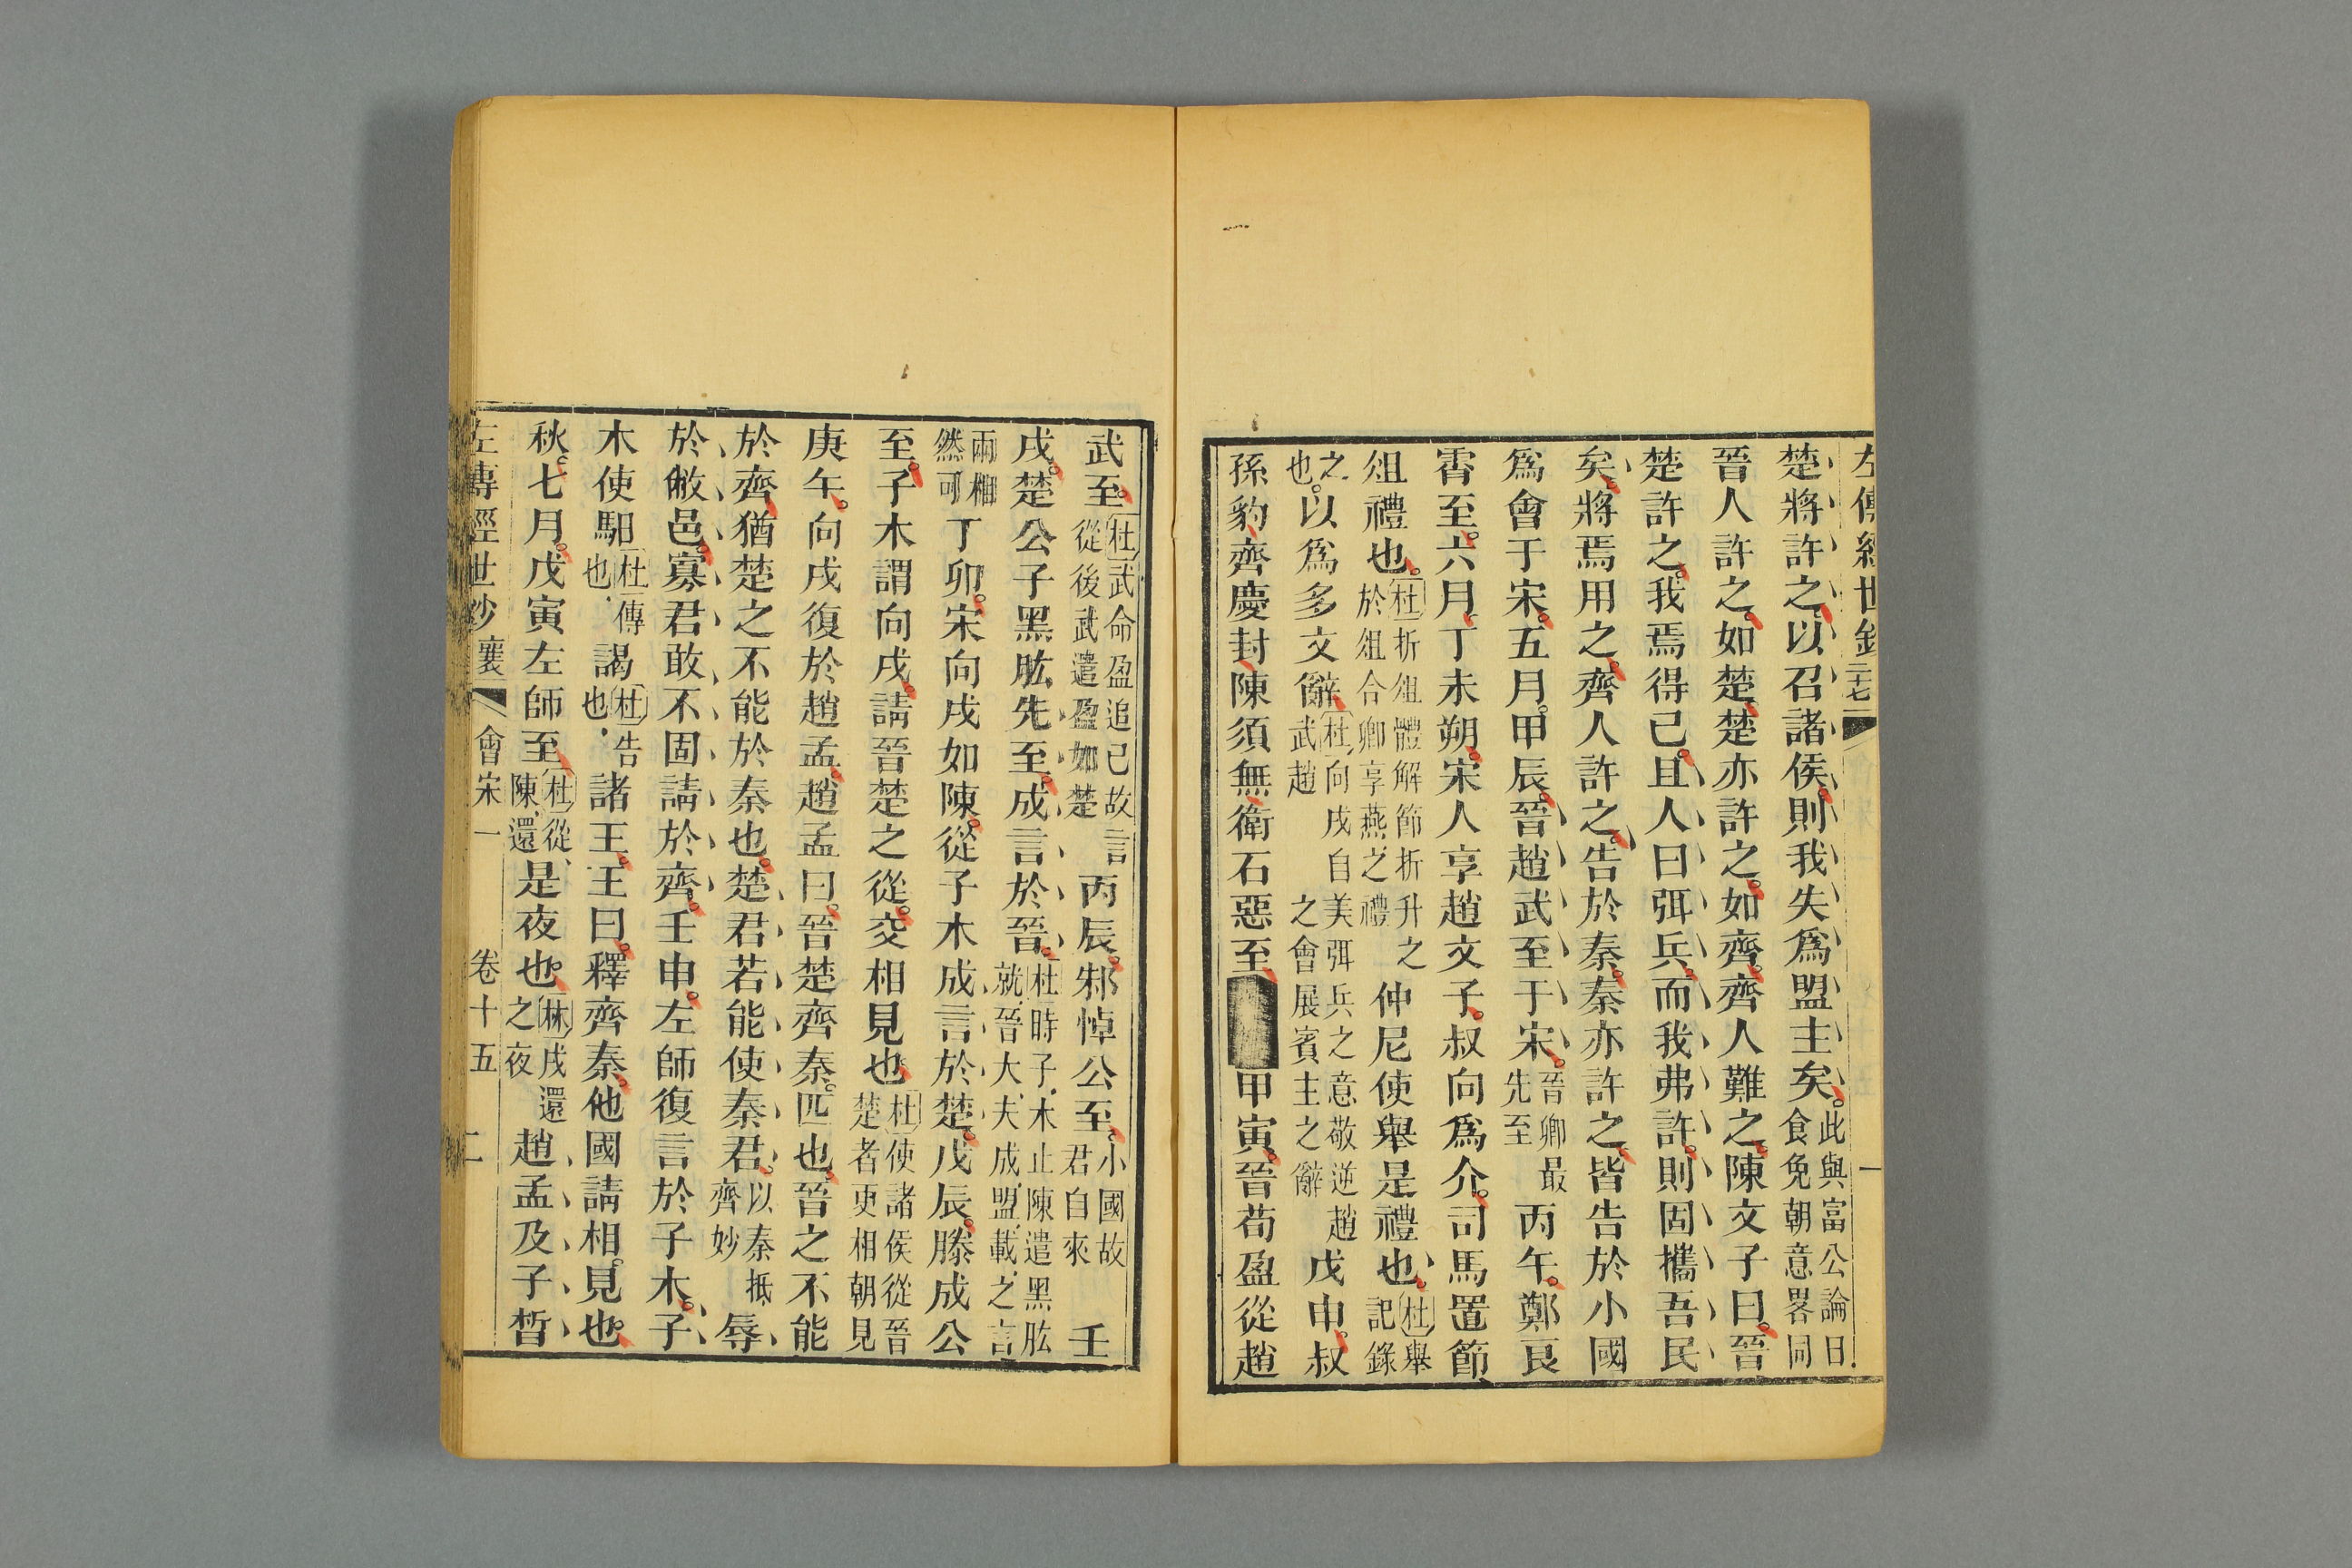 左傳經世鈔 二十七 一
楚將許之以召諸侯則我失爲盟主矣 此與富公論日食免朝意畧同
晉人許之如楚楚亦許之如齊齊人難之陳文子曰晉
楚許之我焉得已且人曰弭兵而我弗許則固攜吾民
矣將焉用之齊人許之告於秦秦亦許之皆告於小國
爲會于宋五月甲辰晉趙武至于宋 晉卿最先至 丙午鄭良
霄至六月丁未朔宋人享趙文子叔向爲介司馬置節
俎禮也 杜折俎體解節折升之於俎合卿享燕之禮 仲尼使舉是禮也 杜舉記錄
之也 以爲多文辭 杜向戌自美弭兵之意敬逆趙武趙 之會展賓主之辭 戊申叔
孫豹齊慶封陳須無衛石惡至 甲寅晉荀盈從趙
武至 杜武命盈追己故言從後武遣盈如楚 丙辰邾悼公至 小國故君自來 壬
戌楚公子黑肱先至成言於晉 杜時子木止陳遣黑肱就晉大夫成盟載之言
兩相然可 丁卯宋向戌如陳從子木成言於楚戊辰滕成公
至子木謂向戌請晉楚之從交相見也 杜使諸侯從晉楚者更相朝見
庚午向戌復於趙孟趙孟曰晉楚齊秦匹也晉之不能
於齊猶楚之不能於秦也楚君若能使秦君 以秦抵齊妙 辱
於敝邑寡君敢不固請於齊壬申左師復言於子木子
木使馹 杜傳也 謁 杜告也 諸王王曰釋齊秦他國請相見也
秋七月戊寅左師至 杜從陳還 是夜也 林戌還之夜 趙孟及子晳
左傳經世鈔 襄 會宋一 卷十五 二